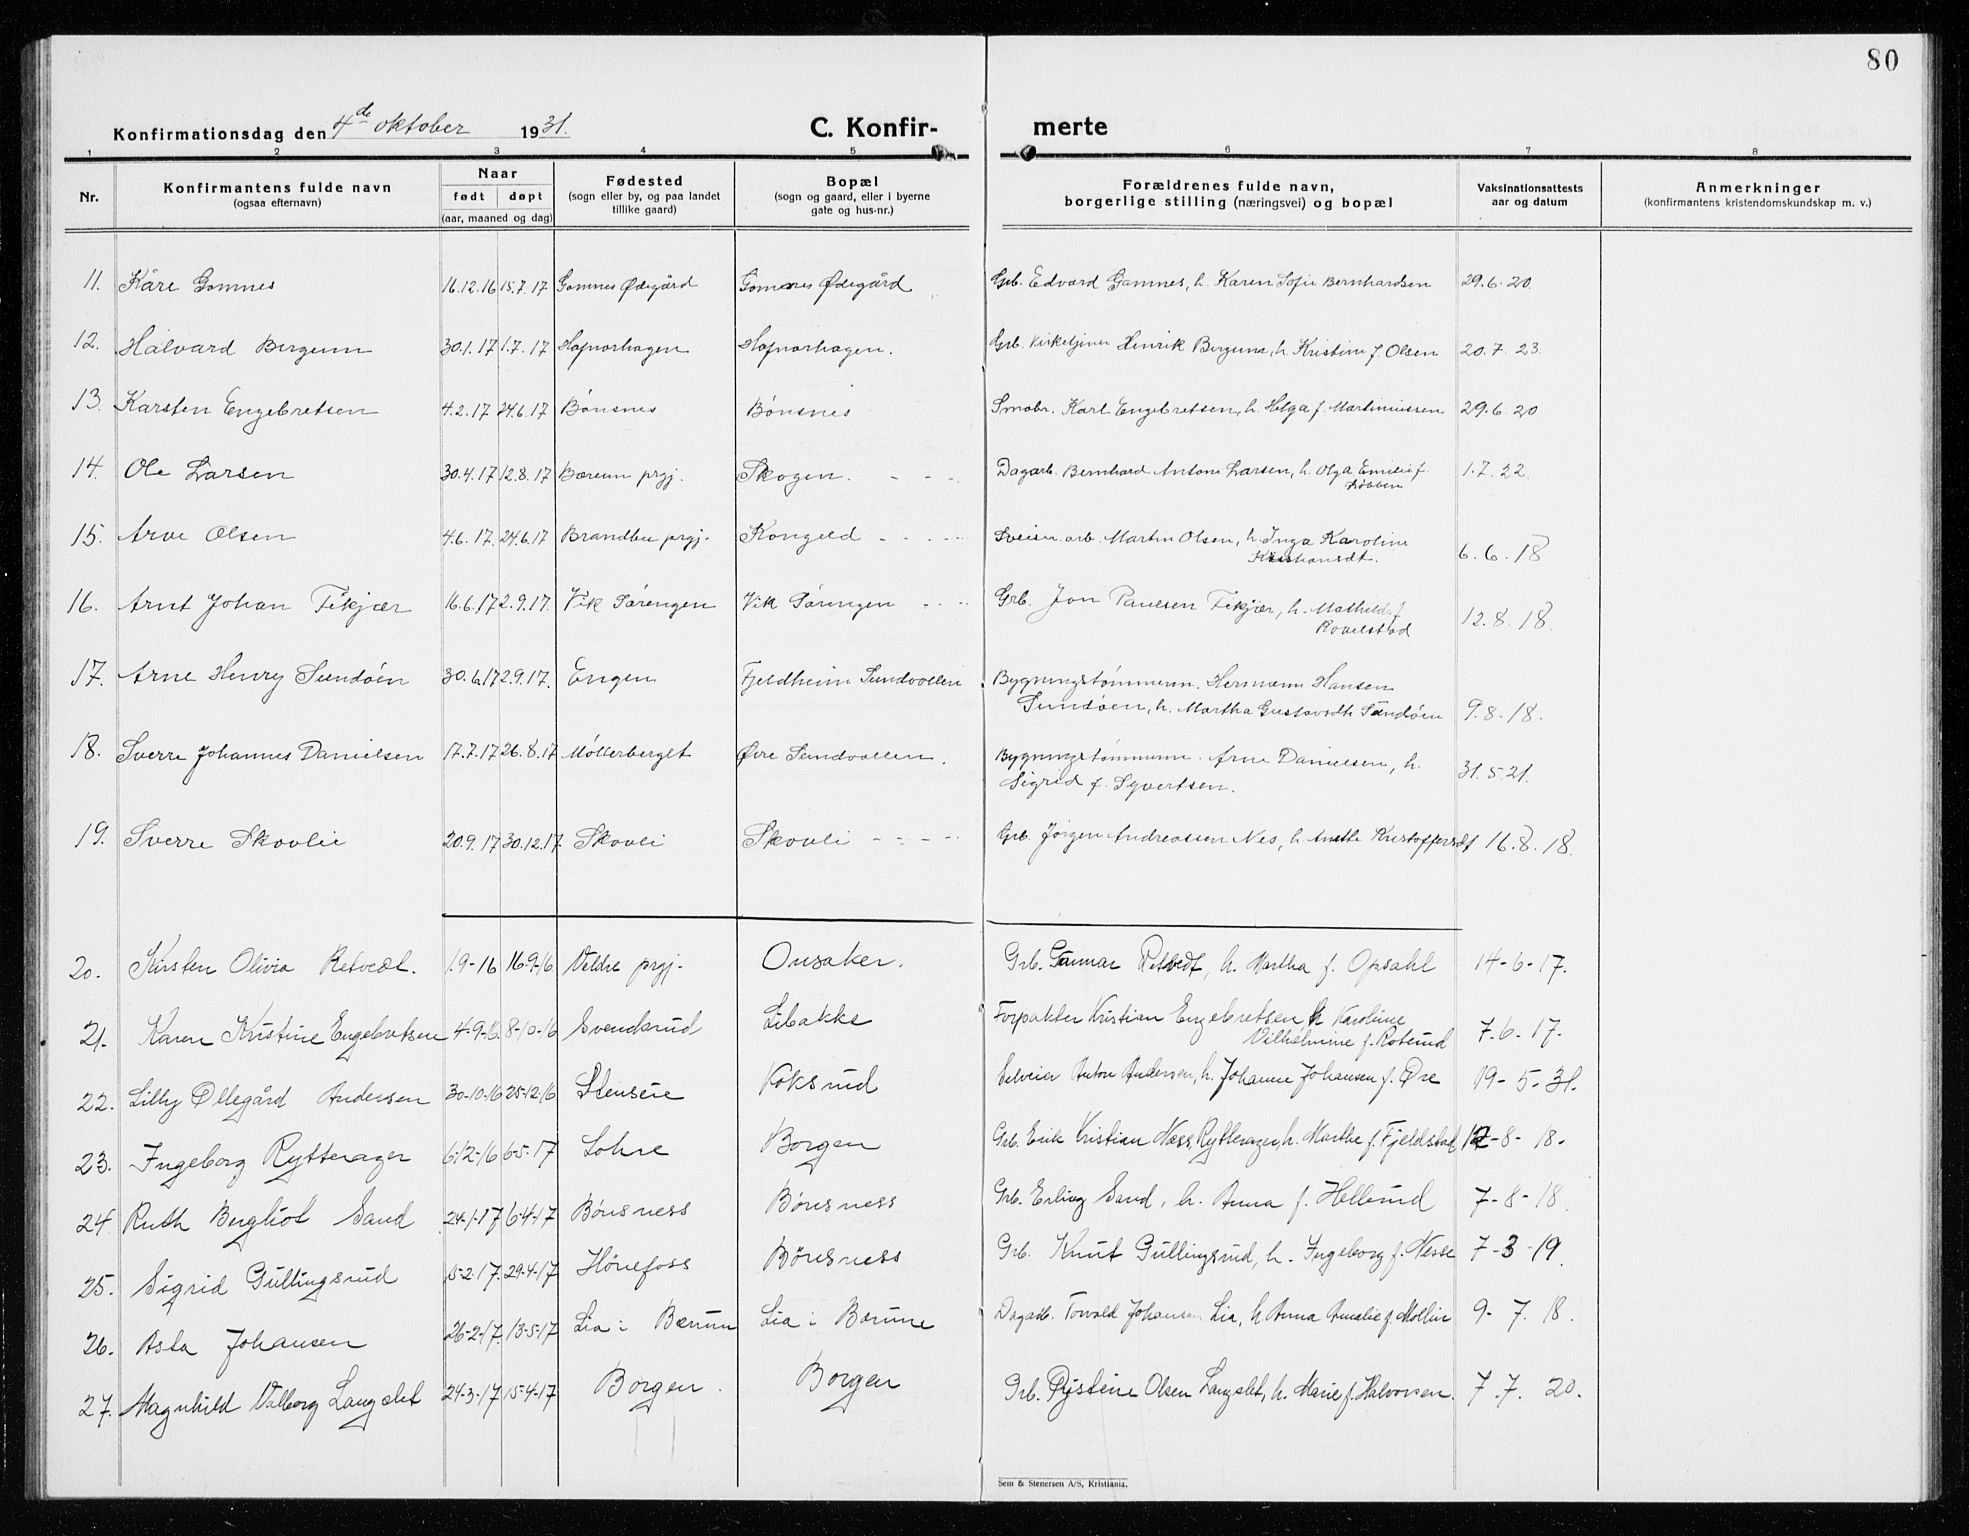 80
Konfirmationsdag den 4de oktober 1931. C. Konfir- merte
1 2 3 4 5 6 7 8
Nr. Konfirmantens fulde navn (ogsaa efternavn) Naar født døpt (aar, maaned og dag) Fødested (sogn eller by, og paa landet tillike gaard) Bopæl (sogn og gaard, eller i byerne gate og hus-nr.) Forældrenes fulde navn, borgerlige stilling (næringsvei) og bopæl Vaksinationsattests aar og datum Anmerkninger (konfirmantens kristendomskundskap m. v.)
11. Kåre Gomnes 16.12.16 15.7.17 Gomnes Ødegård Gomnes Ødegård Grb. Edvard Gomnes, h. Karen Sofie Bernhardsen 29.6.20.
12. Halvard Bergum 30.1.17 1.7.17 Hafnorhagen Hafnorhagen. Grb. Kirketjener Henrik Bergum, h. Kristine f. Olsen 20.7.23.
13. Karsten Engebretsen 4.2.17 24.6.17 Bønsnes Bønsnes Smabr. Karl Engebretsen, h. Helga f. Martiniussen 29.6.20
14. Ole Larsen 30.4.17 12.8.17 Bærum prgj. Skogen. - - - Dagarb. Bernhard Anton Larsen, h. Olga Emilie f.
Løbben 1.7.22.
15. Arve Olsen 4.6.17. 24.6.17 Brandbu prgj. - - - - Sveiser arb. Martin Olsen, h. Inga Karoline
Kristiansdt. 6.6.18
16. Arnt Johan Fekjær 16.6.17 2.9.17. Vik Sørengen Vik Sørengen - - - Grb. Jon Paulsen Fekjær, h. Mathilde f.
12.8.18.
17. Arne Henry Sundøen 30.6.17 2.9.17. Engen Fjeldheim Sundvollen Bygningstømmerm. Hermann Hansen
Sundøen, h. Martha Gustavsdt. Sundøen 9.8.18.
18. Sverre Johannes Danielsen 17.7.17 26.8.17 Møllerberget Øvre Sundvollen. Bygningstømmerm. Arne Danielsen, h.
Sigrid f. Syvertsen. 31.5.21.
19. Sverre Skovlie 20.9.17 30.12.17. Skovli Skovli - - - - Grb. Jørgen Andreassen Nes, h. Anethe Kristoffersdt 16.8.18.
20. Kirsten Olivia Retvedt. 1.9-16 16-9-16 Veldre prgj. Onsaker. Grb. Gunnar Retvedt, h. Martha f. Opsahl 14-6-17.
21. Karen Kristine Engebretsen 4-9-16. 8-10-16 Svendsrud Libakke Forpakter Kristian Engebretsen h Karoline
Vilhelmine f. Roterud 7-6-17.
22. Lilly Øllegård Andersen 30-10-16 25-12-16 Stenseie Koksrud Selveier Anton Andersen, h. Johanne Johansen f. Øre 19-5-31.
23. Ingeborg Rytterager 6-12-16 6-5-17 Lohre Borgen Grb. Erik Kristian Næss Rytterager, h. Marthe f. Fjeldstad 12-8-18.
24. Ruth Bergliot Sand 24-1-17 6-4-17 Bønsness Bønsness Grb. Erling Sand, h. Anna f. Hellerud 7-8-18.
25. Sigrid Gullingsrud 15-2-17. 29-4-17 Hønefoss Bønsness Grb. Knut Gullingsrud, h. Ingeborg f. Nesse 7-3-19.
26. Asta Johansen 26-2-17. 13-5-17 Lia i Bærum Lia i Bærum Dagarb. Torvald Johansen Lia, h. Anna Amalie f. Mollin 9-7.18.
27. Magnhild Valborg Langslet 24-3-17 15-4-17 Borgen. Borgen Grb. Øjsteine Olsen Langslet, h. Marie f. Halvorsen. 7.7.20.
Sem & Stenersen A/S, Kristiania.